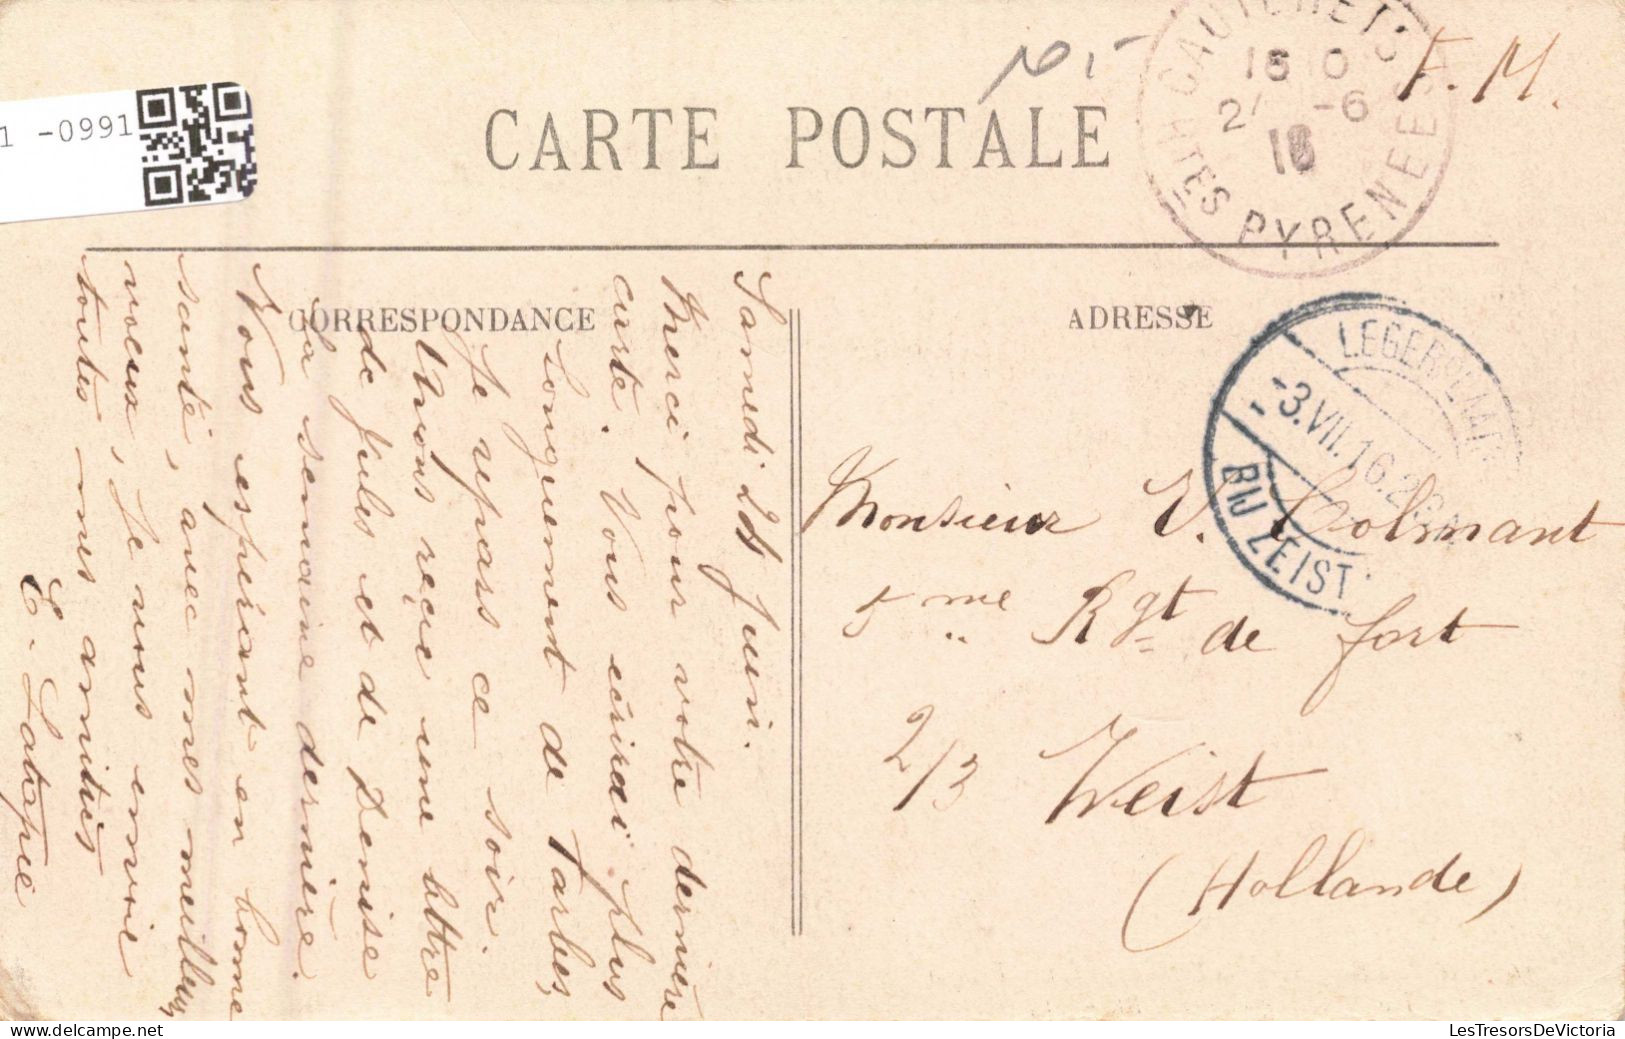 1 -0991
CARTE POSTALE
F. M.
CAUTERETS
16 10
2 -6
16
HTES PYRENEES
CORRESPONDANCE
ADRESSE
LEGERPLAATS
-3.VII.16.2
BIJ ZEIST
Samedi 24 Juin.
Merci pour votre dernière
carte. Vous écrirai plus
longuement de Tarbes,
Je repars ce soir.
Avons reçu une lettre
de Jules et de Denise
la semaine dernière.
Vous espérant en bonne
santé, avec mes meilleurs
voeux, Je vous envoie
toutes mes amitiés
E. Latapie
Monsieur V. Colmant
5me Rgt de fort
2/3 Weist
(Hollande)
LesTresorsDeVictoria